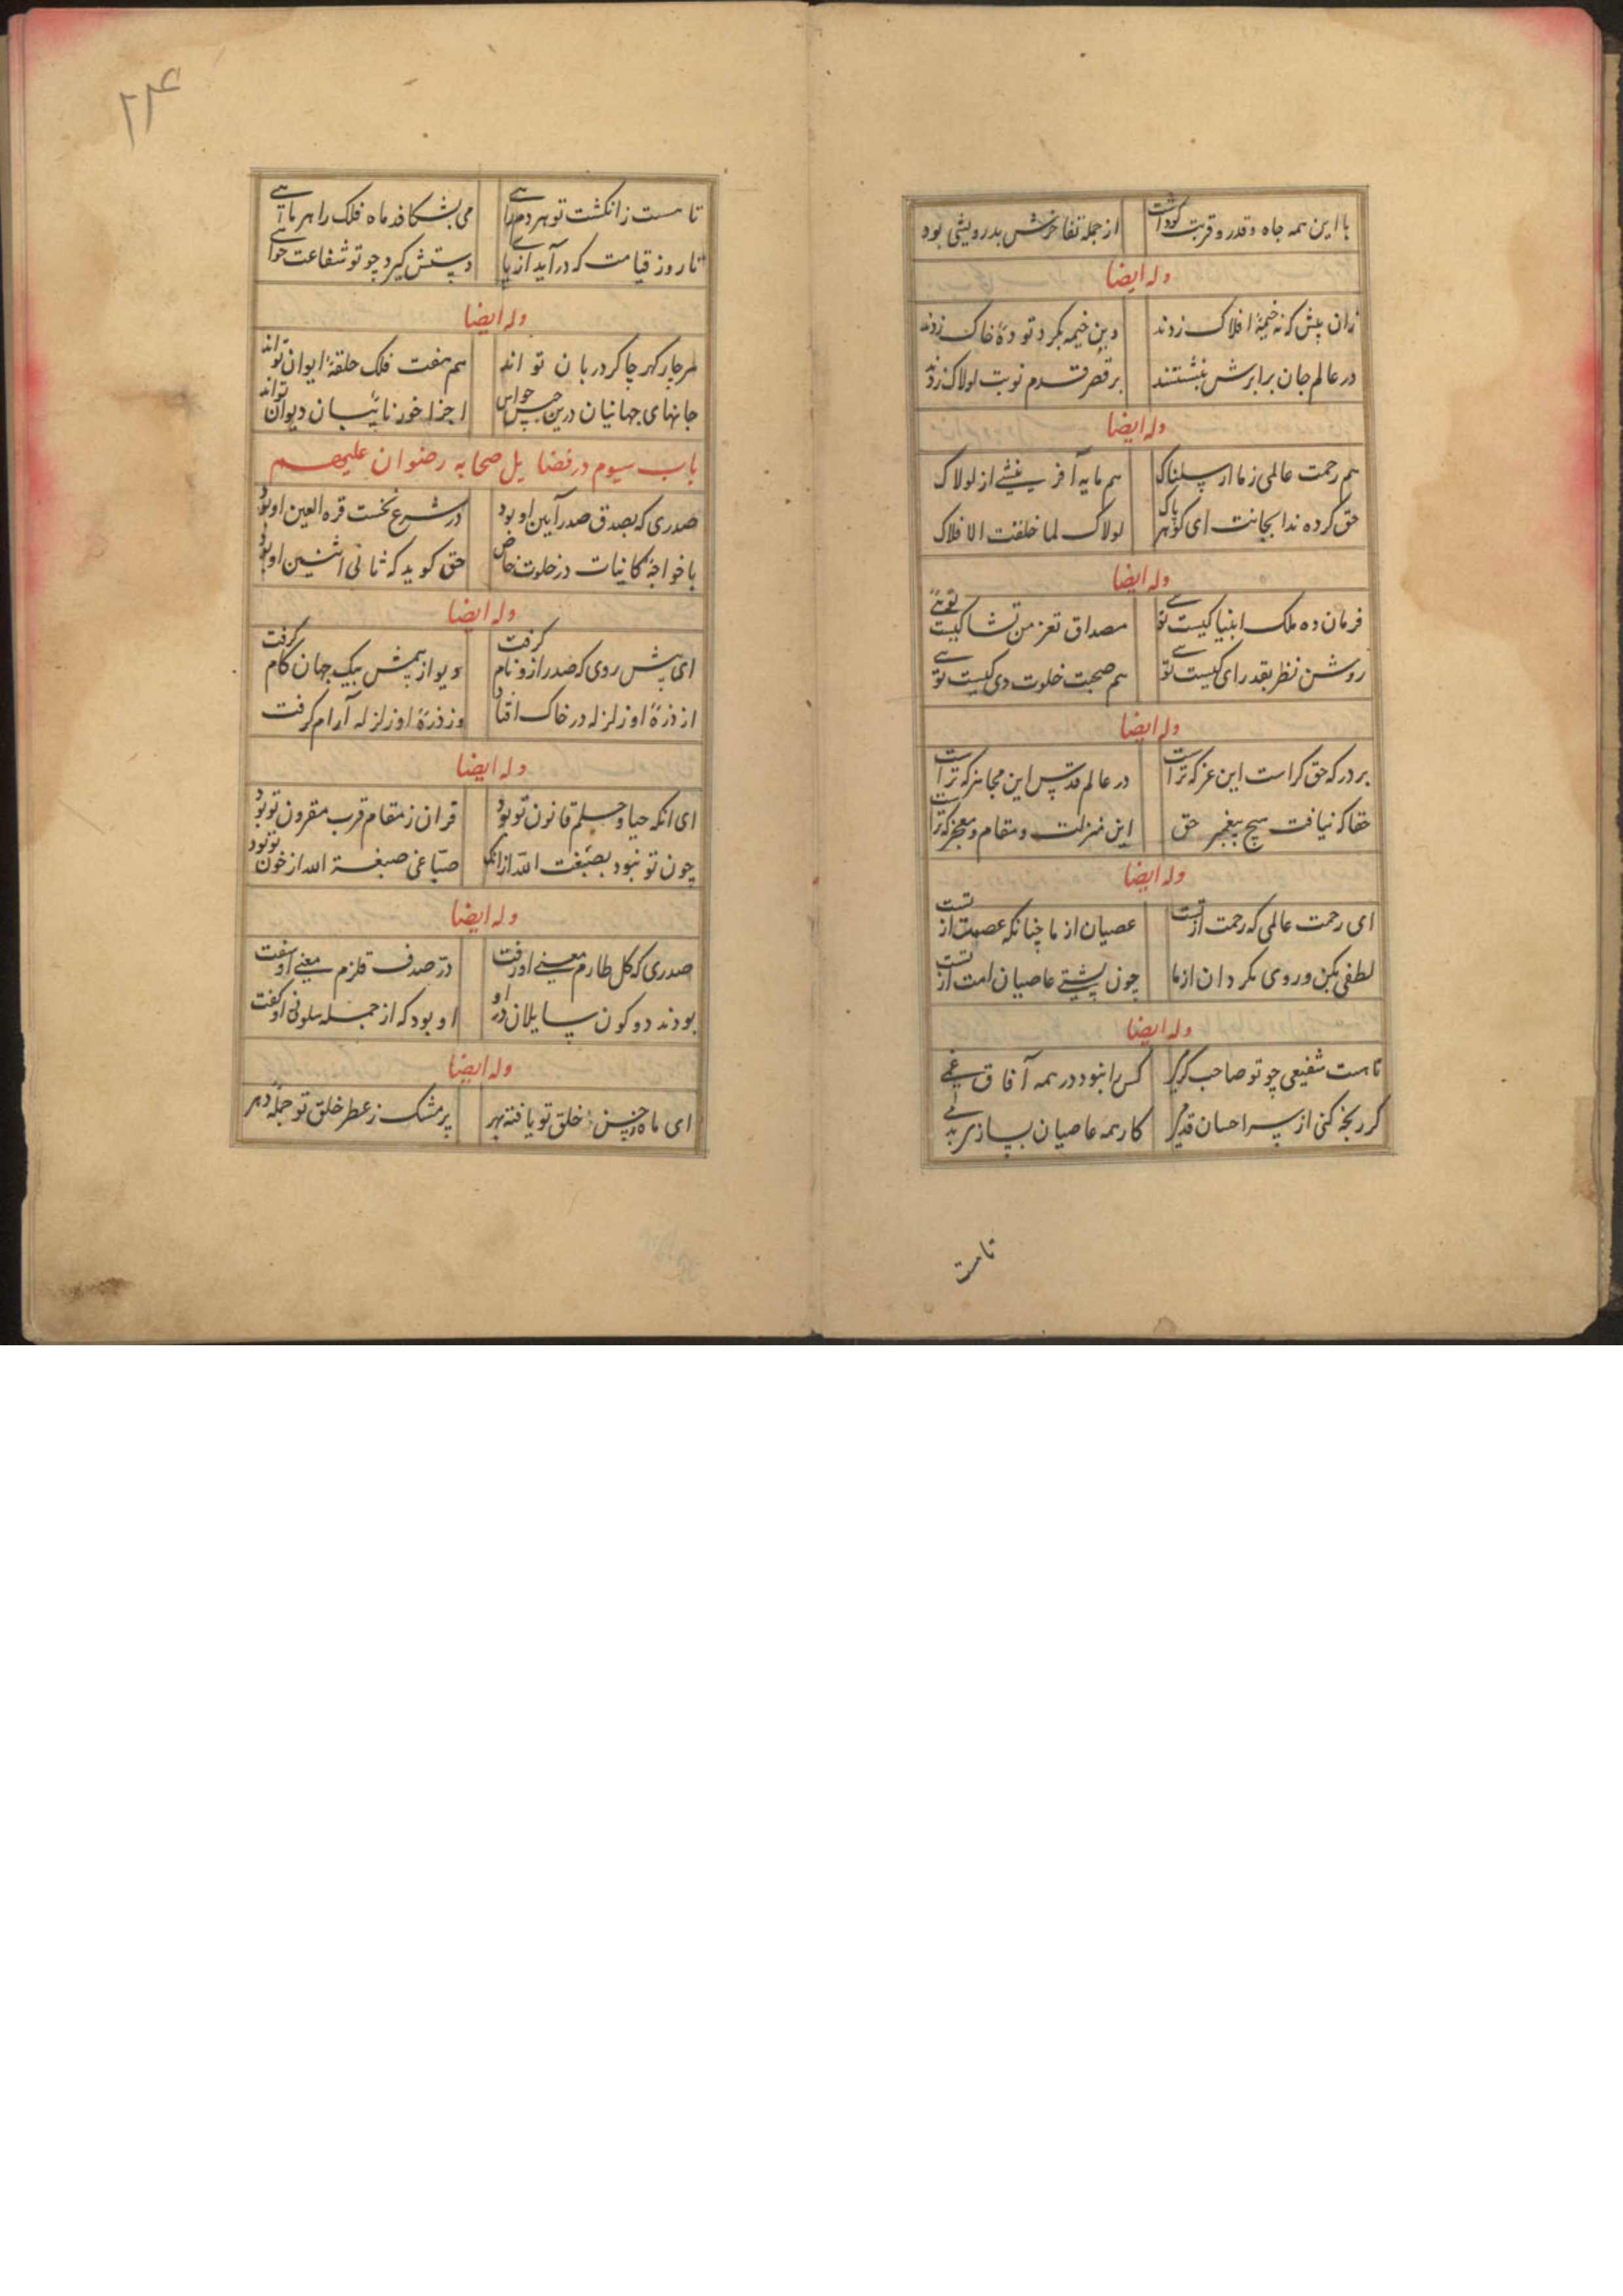 با این همه جاه و قدر و قربت کو داشت از جمله تفاخرش بدرویشی بود
وله ایضا
زان پیش که نه خیمهٔ افلاک زدند وین خیمه بگرد تودهٔ خاک زدند
در عالم جان برابرش ننشستند بر قصر قدم نوبت لولاک زدند
وله ایضا
هم رحمت عالمی ز ما ارسلناک هم مایه آفرینشی از لولاک
حق کرده ندا بجانت ای گوهر پاک لولاک لما خلقت الافلاک
وله ایضا
فرمان ده ملک انبیا کیست توئی مصداق تعز من تشا کیست توئی
روشن نظر بقدرای کیست توئی هم صحبت خلوت دی کیست توئی
وله ایضا
بر درکه حق کراست این عز که تراست در عالم قدس این مجاهز که تراست
حقا که نیافت هیچ پیغمبر حق این منزلت و مقام و معجز که تراست
وله ایضا
ای رحمت عالمی که رحمت از تست عصیان از ما چنانکه عصمت از تست
لطفی بکن و روی مگردان از ما چون پشتی عاصیان امت از تست
وله ایضا
تا هست شفیعی چو تو صاحب کرمی کس را نبود در همه آفاق غمی
گر رنجه کنی از سر احسان قدمی کار همه عاصیان بسازی بدمی
تا هست
۲۲۴
تا هست ز انگشت تو هر دم راهی می بشکافد ماه فلک را هر ماهی
تا روز قیامت که در آید از پای دستش گیرد چو تو شفاعت خواهی
وله ایضا
هر چار گهر چاکر دربان تو اند هم هفت فلک حلقهٔ ایوان تو اند
جانهای جهانیان درین حبس حواس اجزا خور نایبان دیوان تو اند
باب سیوم در فضایل صحابه رضوان علیهم
صدری که بصدق صدر آیین او بود در شرع نخست قره العین او بود
با خواجهٔ کاینات در خلوت خاص حق گوید که ثانی اثنین او بود
وله ایضا
ای پیش روی که صدر ازو نام گرفت دیو از پیش بیک جهان کام گرفت
از ذرهٔ او زلزله در خاک افتاد وز ذرهٔ او زلزله آرام گرفت
وله ایضا
ای انکه حیا و حلم قانون تو بود قران ز مقام قرب مقرون تو بود
چون تو نبود بصبغت الله از انک صبّاغی صبغة الله از خون تو بود
وله ایضا
صدری که گل طارم معنی او رفت درّ صدف قلزم معنی او سفت
بودند دو کون سایلان در او او بود که از جمله سلونی او گفت
وله ایضا
ای ماه ز حسن خلق تو یافته بهر پر مشک ز عطر خلق تو جملهٔ دهر